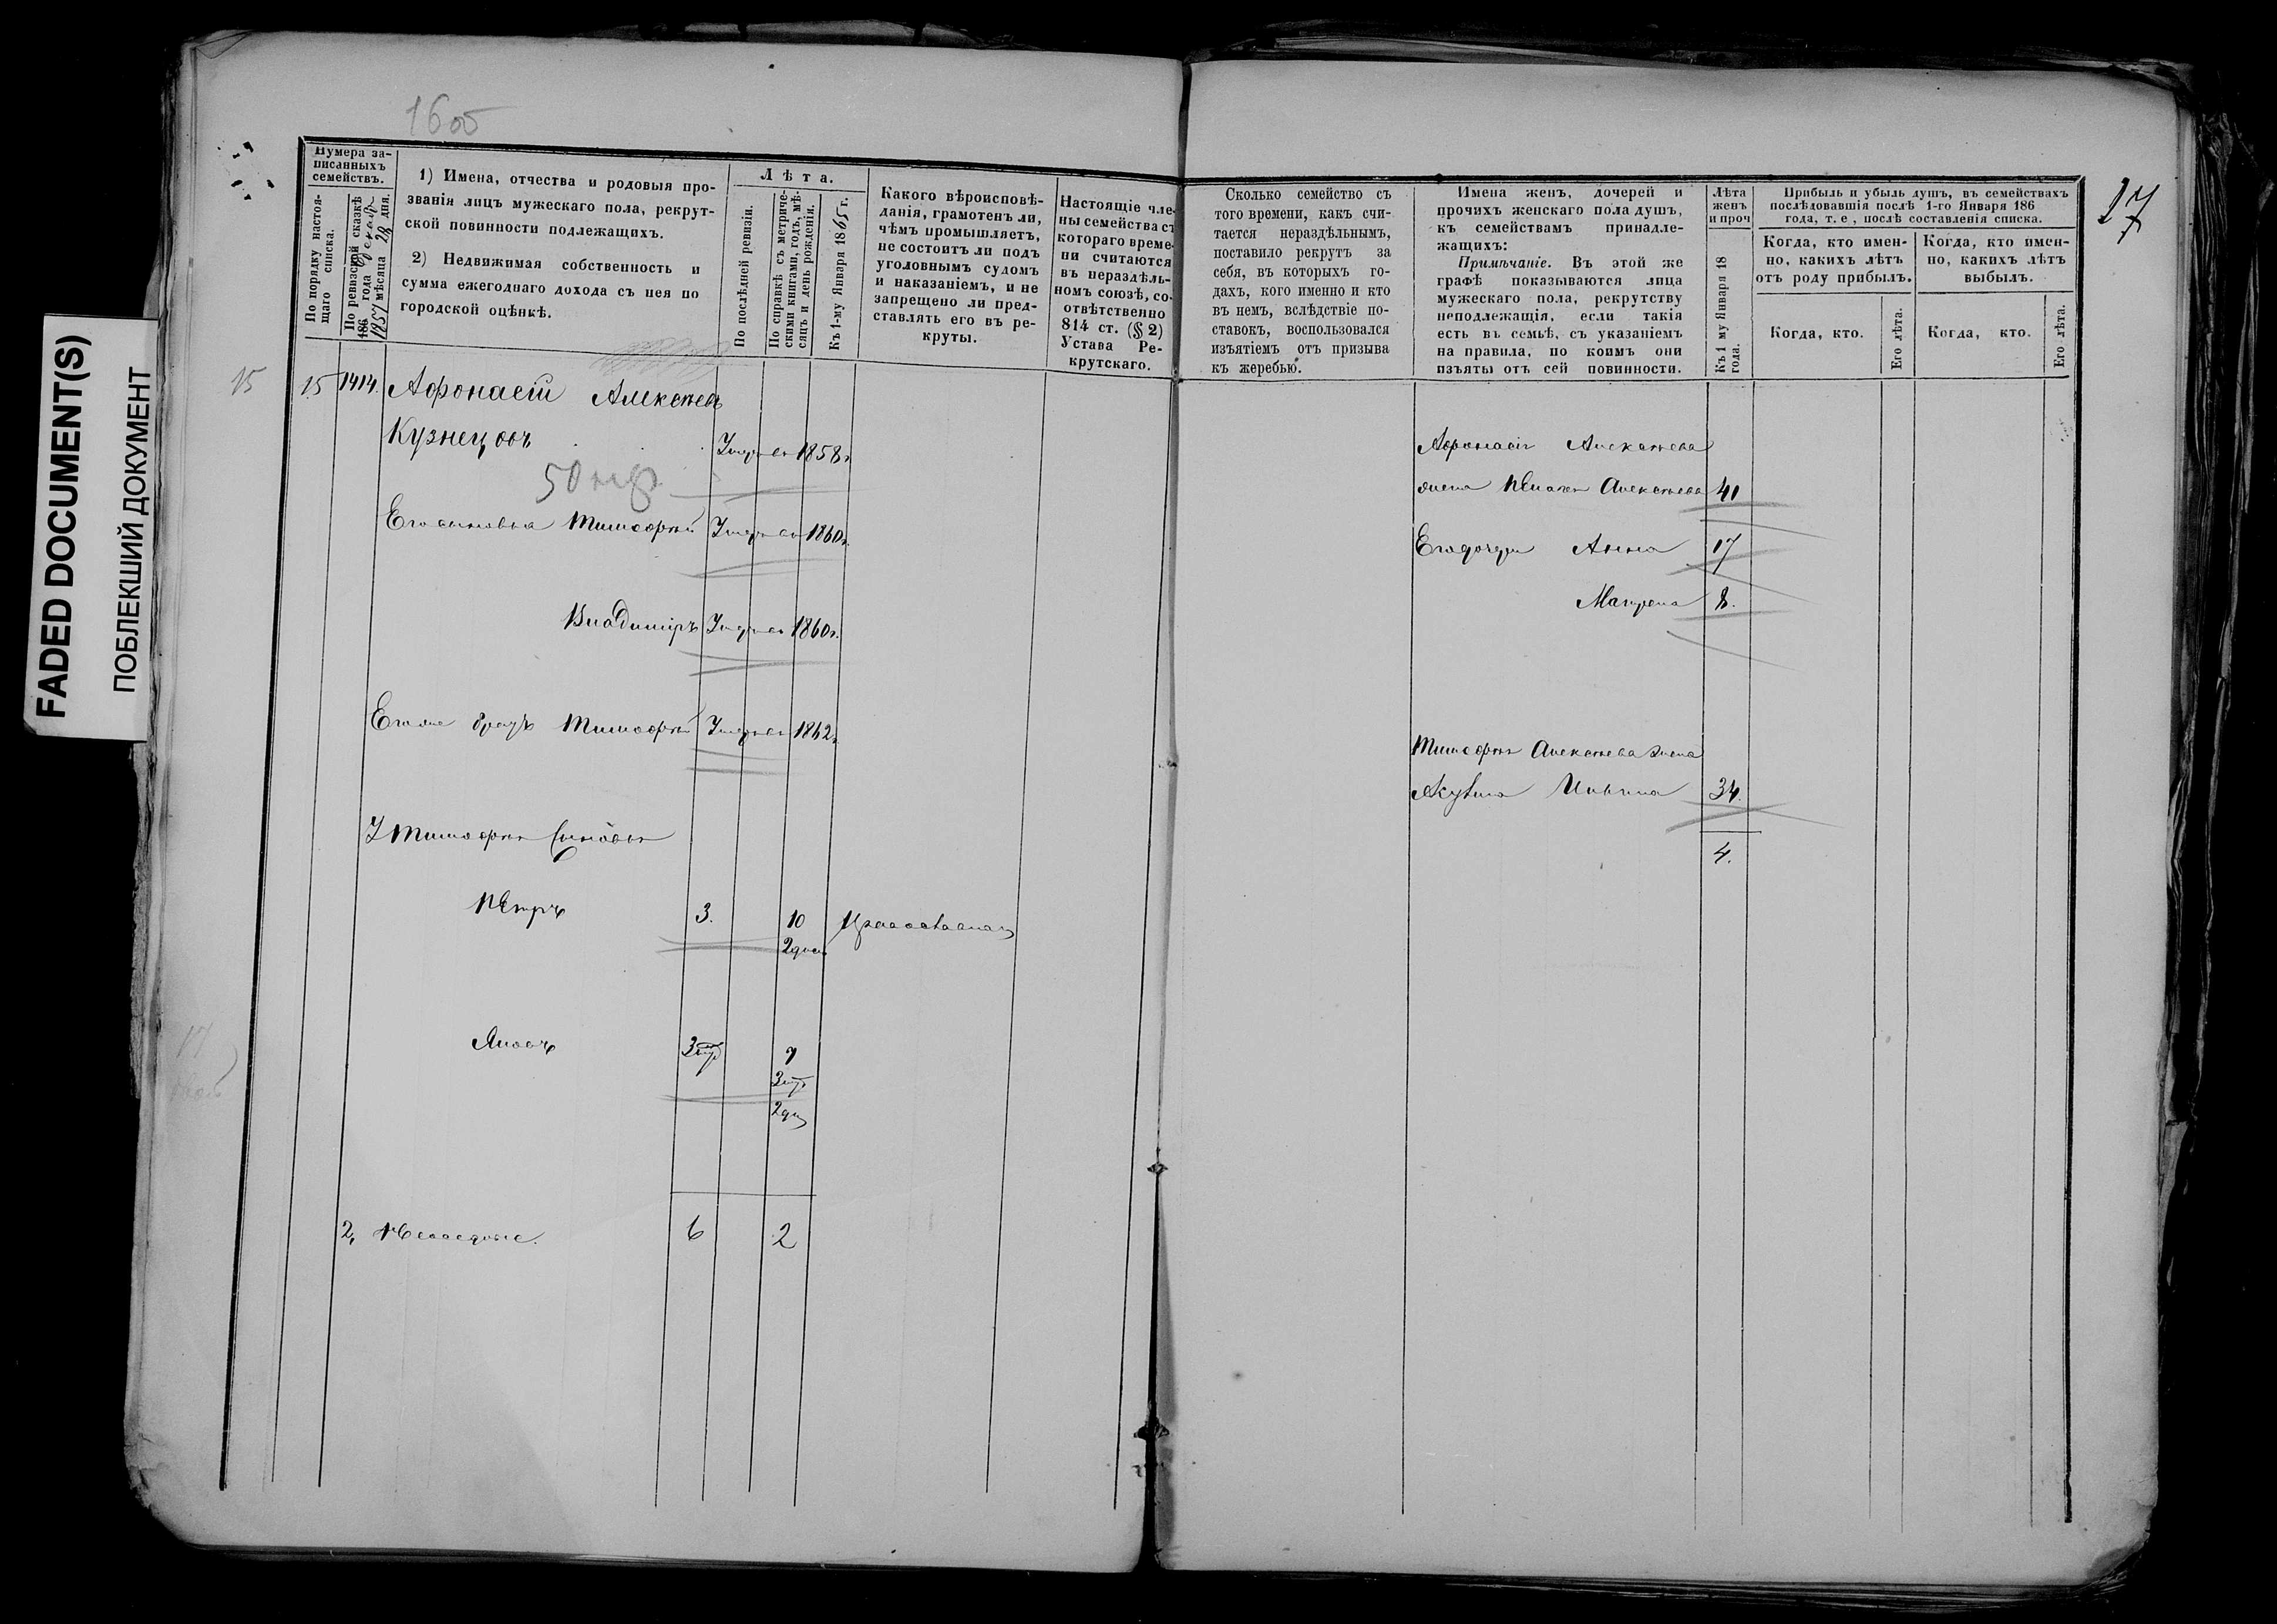 FADED DOCUMENT(S)
ПОБЛЕКШИЙ ДОКУМЕНТ
1605
Нумера за-
писанныхъ
семействъ.
По порядку настоя-
щаго списка.
По ревизской сказкѣ
186 года Декабр
1857 мѣсяца 28 дня.
1) Имена, отчества и родовыя про-
званія лицъ мужескаго пола, рекрут-
ской повинности подлежащихъ.
2) Недвижимая собственность и
сумма ежегоднаго дохода съ нея по
городской оцѣнкѣ.
Лѣта.
По послѣдней ревизіи.
По справкѣ съ метриче-
скими книгами, годъ, мѣ-
сяцъ и день рожденія.
Къ 1-му Января 1865 г.
Какого вѣроисповѣ-
данія, грамотенъ ли,
чѣмъ промышляетъ,
не состоитъ ли подъ
уголовнымъ судомъ
и наказаніемъ, и не
запрещено ли пред-
ставлять его въ ре-
круты.
Настоящіе чле-
ны семейства съ
котораго време-
ни считаются
въ нераздѣль-
номъ союзѣ, со-
отвѣтственно
814 ст. (§ 2)
Устава Ре-
крутскаго.
15
15
1414.
Афонасій Алексѣевъ
Кузнецовъ
Умеръ въ 1858 г.
Его сыновья Тимофѣй
Умеръ въ 1860 г.
Владиміръ
Умеръ въ 1860 г.
Его же братъ Тимофѣй
Умеръ въ 1862 г.
У Тимофѣя Сыновья
Петръ
3.
10
2 дня
Православнаго
3 мѣс
7
3 мѣс
2 дня
2,
6
2
27
Сколько семейство съ
того времени, какъ счи-
тается нераздѣльнымъ,
поставило рекрутъ за
себя, въ которыхъ го-
дахъ, кого именно и кто
въ немъ, вслѣдствіе по-
ставокъ, воспользовался
изъятіемъ отъ призыва
къ жеребью.
Имена женъ, дочерей и
прочихъ женскаго пола душъ,
къ семействамъ принадле-
жащихъ:
Примѣчаніе. Въ этой же
графѣ показываются лица
мужескаго пола, рекрутству
неподлежащія, если такія
есть въ семьѣ, съ указаніемъ
на правила, по коимъ они
изъяты отъ сей повинности.
Лѣта
женъ
и проч
Къ 1 му Января 18
года.
Прибыль и убыль душъ, въ семействахъ
послѣдовавшія послѣ 1-го Января 186
года, т. е, послѣ составленія списка.
Когда, кто имен-
но, какихъ лѣтъ
отъ роду прибылъ.
Когда, кто.
Его лѣта.
Когда, кто имен-
но, какихъ лѣтъ
выбылъ.
Когда, кто.
Его лѣта.
Афонасія Алексѣева
жена Алексѣева
41
Его дочери Анна
17
Матрена
8.
Тимофѣя Алексѣева жена
Акулина
34.
4.